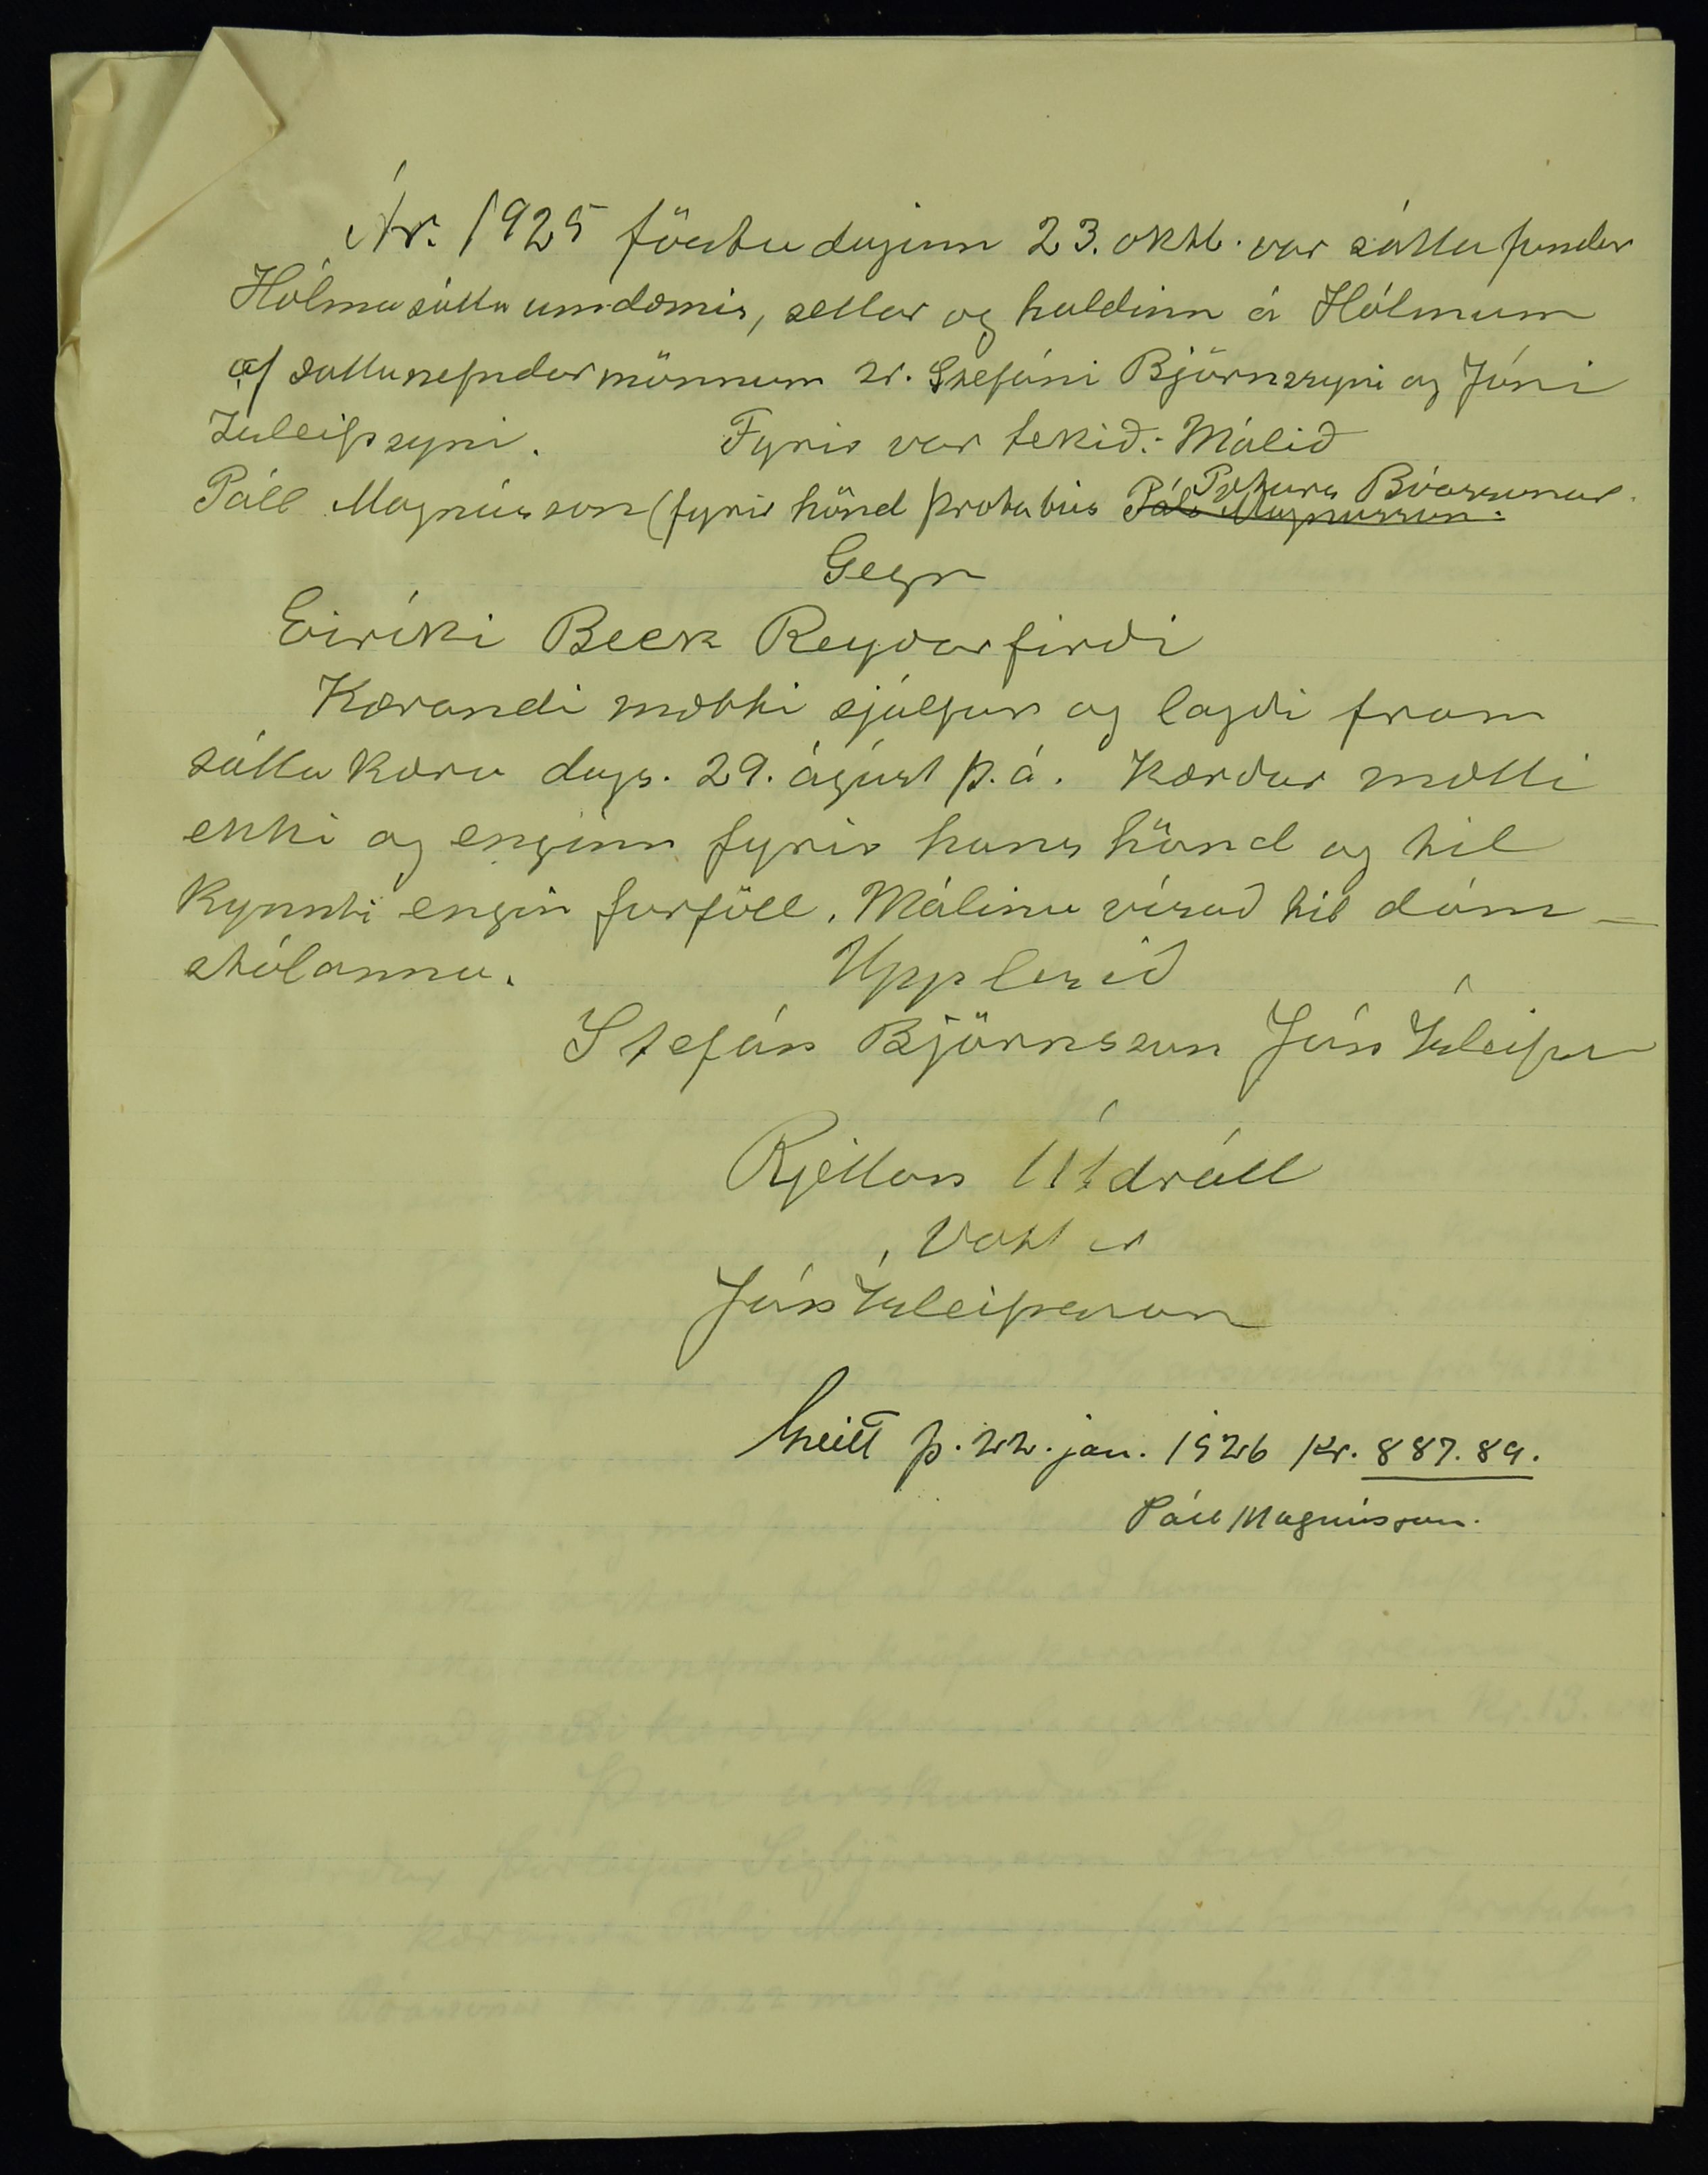 Ár. 1925 föstudaginn 23. októb. var sáttafundur
Hólmasáttaumdæmis, settur og haldinn á Hólmum
af sáttanefndarmönnum sr. Stefáni Björnssyni og Jóni
Ísleifssyni. Fyrir var tekið:- Málið
Páll Magnússon (fyrir hönd þrotabús Páls Magnússon. Péturs Bóassonar.
Gegn
Eiríki Beck Reyðarfirði
Kærandi mætti sjálfur og lagði fram
sáttakæru dags. 29. ágúst þ. á. Kærður mætti
ekki og enginn fyrir hans hönd og til
kynnti engin forföll. Málinu vísað til dóm-
stólanna. Upplesið
Stefán Björnsson Jón Ísleifss
Rjettan Útdrátt
Vottar
Jón Ísleifsson
Greitt þ. 22. jan. 1926 Kr. 887.89.
Páll Magnússon.